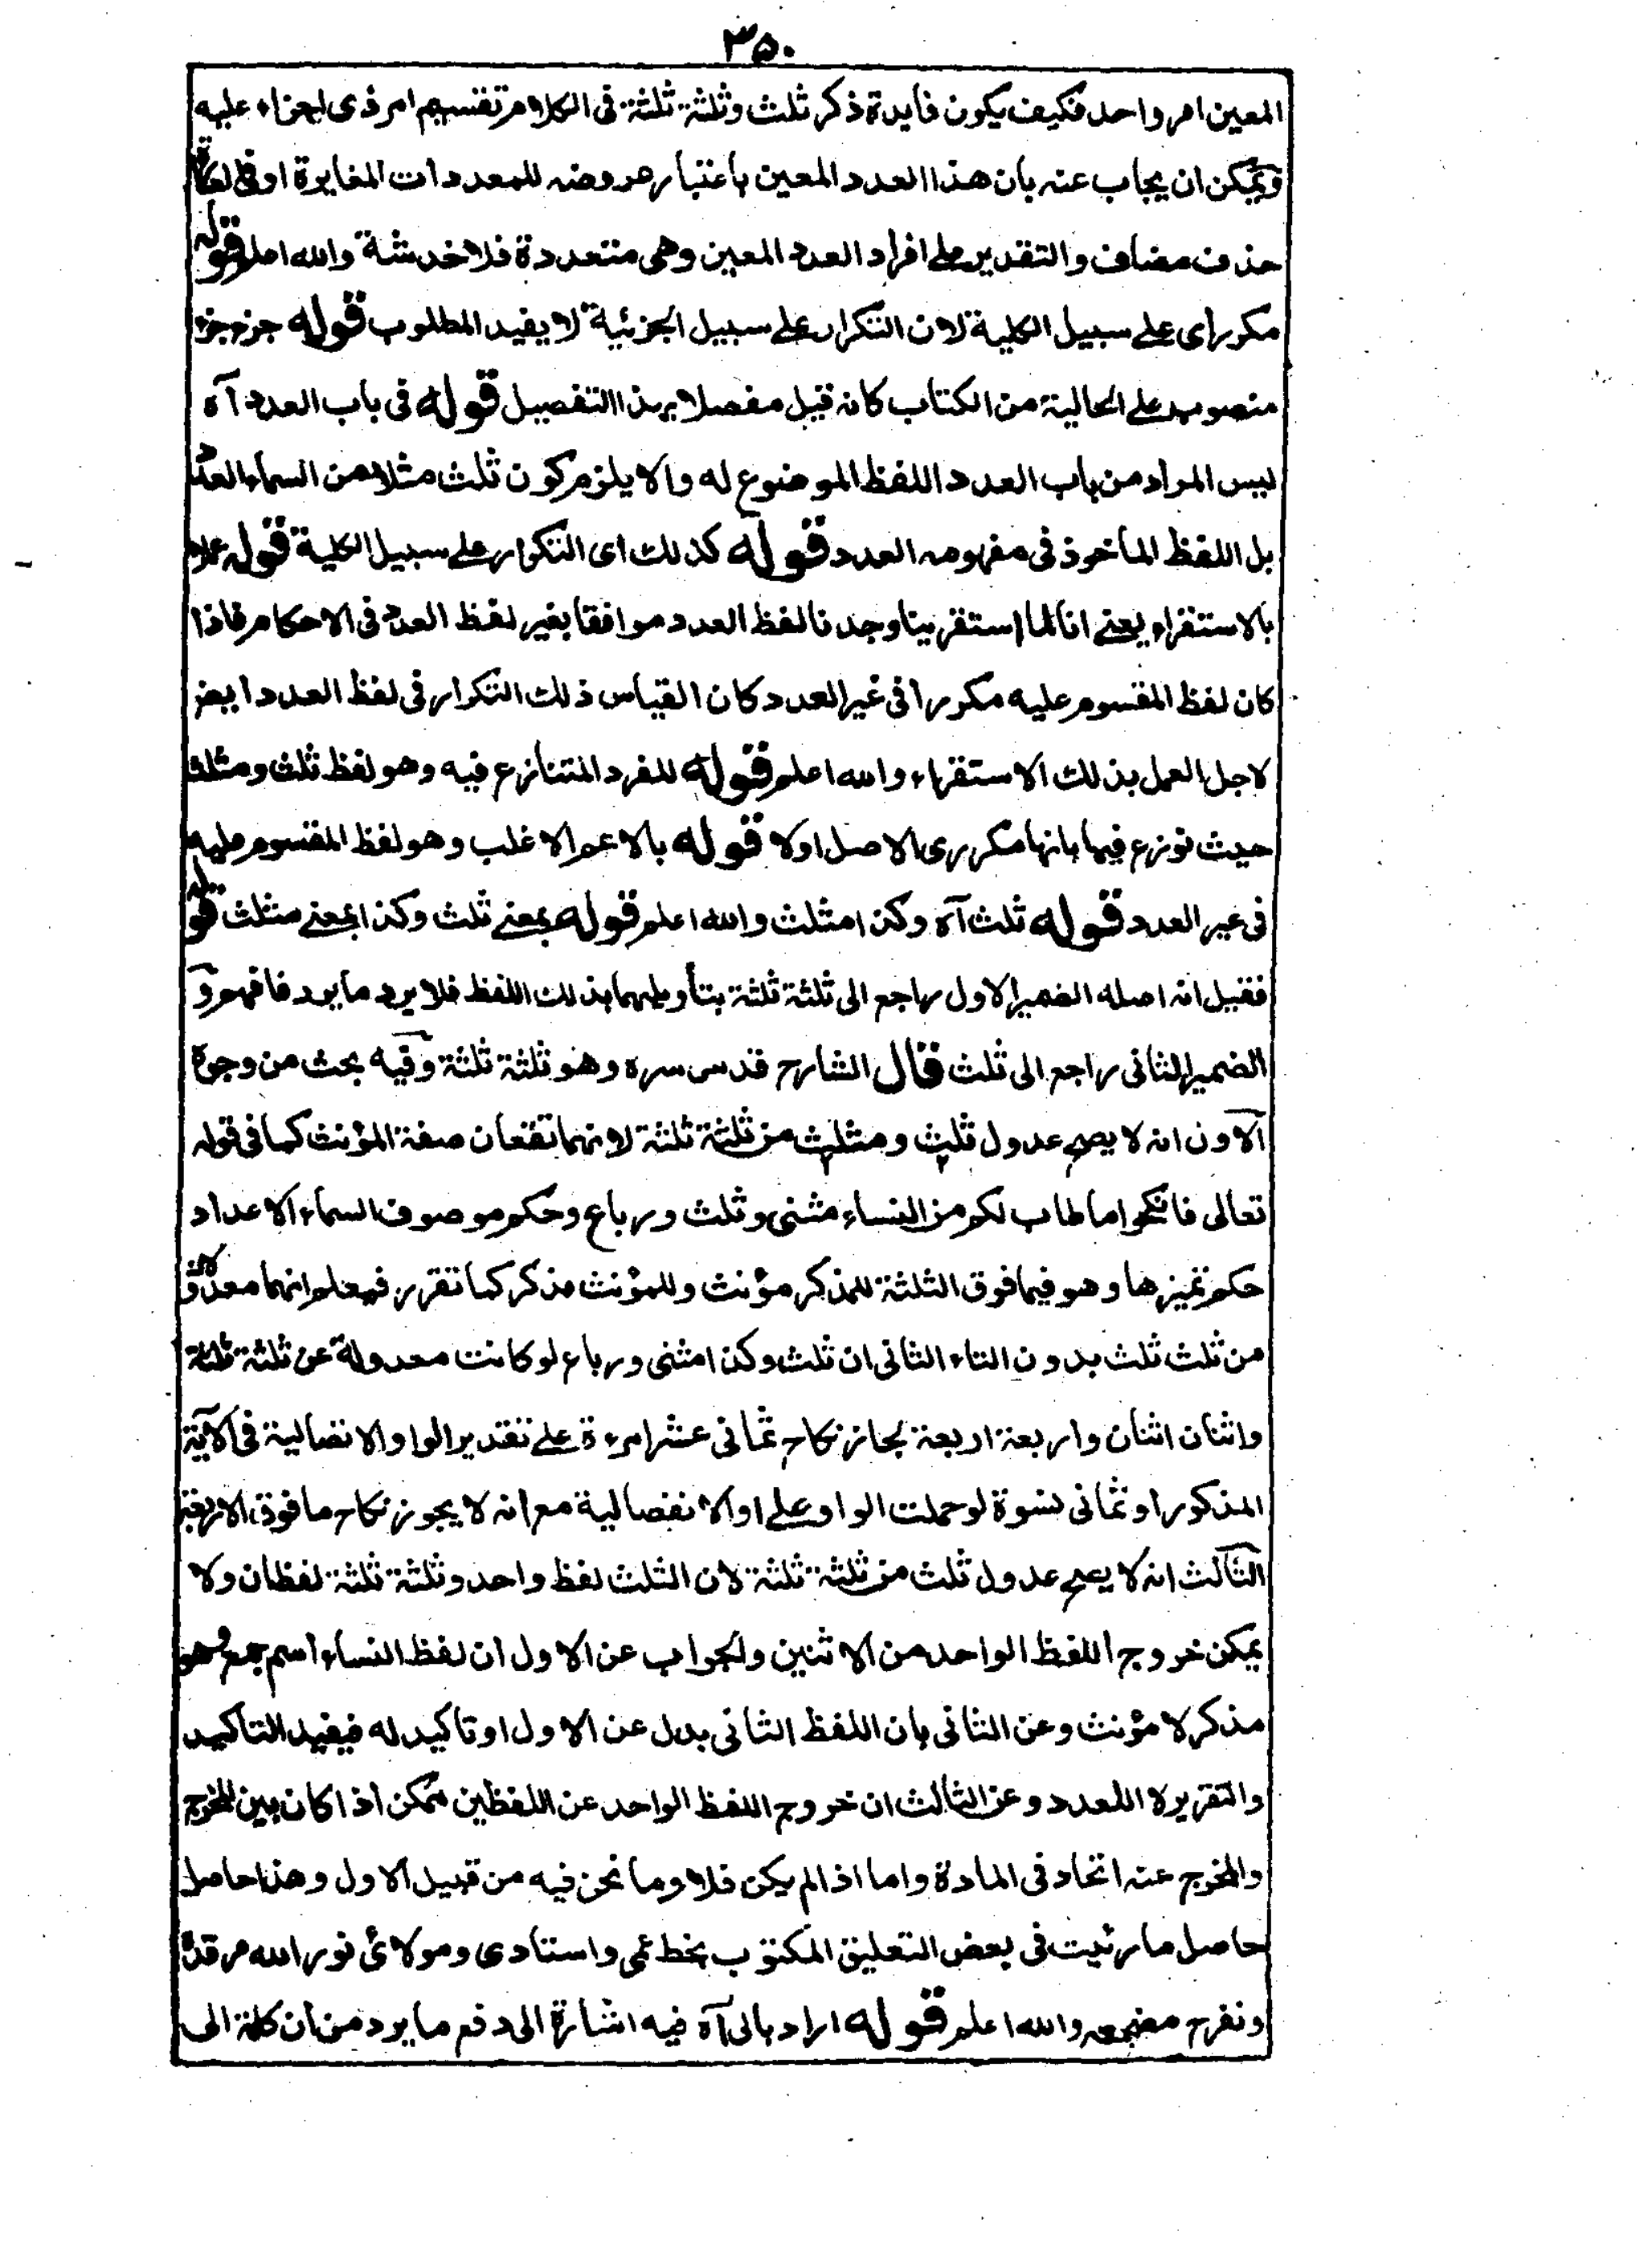 ٣٥٠
المعين امر واحد فكيف يكون فايدة ذكر ثلث وثلثة ثلثة فى الكلام تقسيم امر ذى اجزاء عليه
ويمكن ان يجاب عنه بان هذا العدد المعين باعتبار عروضه للمعدودات المغايرة او فى الكلام
حذف مضاف والتقدير على افراد العدد المعين وهى متعددة فلا خدشة والله اعلم قوله
مكررا اى على سبيل الكلية لان التكرار على سبيل الجزئية لا يفيد المطلوب قوله جزء جزء
منصوب على الحالية من الكتاب كانه قيل مفصلا بهذا التفصيل قوله فى باب العدد آه
ليس المراد من باب العدد اللفظ الموضوع له والا يلزم كون ثلث مثلا من اسماء العدد
بل اللفظ الماخوذ فى مفهومه العدد قوله كذلك اى التكرار على سبيل الكلية قوله عملا
بالاستقراء يعنى انا لما استقرينا وجدنا لفظ العدد موافقا بغير لفظ العدد فى الاحكام فاذا
كان لفظ المقسوم عليه مكررا فى غير العدد كان القياس ذلك التكرار فى لفظ العدد ايضا
لاجل العمل بذلك الاستقراء والله اعلم قوله للفرد المتنازع فيه وهو لفظ ثلث ومثلث
حيث نوزع فيها بانها مكررى الاصل اولا قوله بالاعم الاغلب وهو لفظ المقسوم عليه
فى غير العدد قوله ثلث آه وكذا مثلث والله اعلم قوله بمعنى ثلث وكذا بمعنى مثلث قوله
فقيل انه اصله الضمير الاول راجع الى ثلثة ثلثة بتأويلهما بذلك اللفظ فلا يرد ما يرد فافهم و
الضمير الثانى راجع الى ثلث قال الشارح قدس سره وهو ثلثة ثلثة وفيه بحث من وجوه
الاول انه لا يصح عدول ثلث ومثلث من ثلثة ثلثة لانهما تقعان صفة المؤنث كما فى قوله
تعالى فانكحوا ما طاب لكم من النساء مثنى وثلث ورباع وحكم موصوف اسماء الاعداد
حكم تميزها وهو فيما فوق الثلثة للمذكر مؤنث وللمؤنث مذكر كما تقرر فيعلم انهما معدولان
من ثلث ثلث بدون التاء الثانى ان ثلث وكذا مثنى ورباع لو كانت معدولة عن ثلثة ثلثة
واثنان اثنان واربعة اربعة لجاز نكاح ثمانى عشر امرءة على تقدير الواو الاتصالية فى الآية
المذكور او ثمانى نسوة لو حملت الواو على او الانفصالية مع انه لا يجوز نكاح ما فوق الاربعة
الثالث انه لا يصح عدول ثلث من ثلثة ثلثة لان الثلث لفظ واحد وثلثة ثلثة لفظان ولا
يمكن خروج اللفظ الواحد من الاثنين والجواب عن الاول ان لفظ النساء اسم جمع وهو
مذكر لا مؤنث وعن الثانى بان اللفظ الثانى بدل عن الاول او تاكيد له فيفيد التاكيد
والتقرير لا التعدد وعن الثالث ان خروج اللفظ الواحد عن اللفظين ممكن اذا كان بين المخرج
والمخرج عنه اتحاد فى المادة واما اذا لم يكن فلا وما نحن فيه من قبيل الاول وهذا حاصل
حاصل ما رئيت فى بعض التعليق المكتوب بخط عمى واستادى ومولائى نور الله مرقده
ونفرح مضجعه والله اعلم قوله اراد بالى آه فيه اشارة الى دفع ما يرد من ان كلمة الى